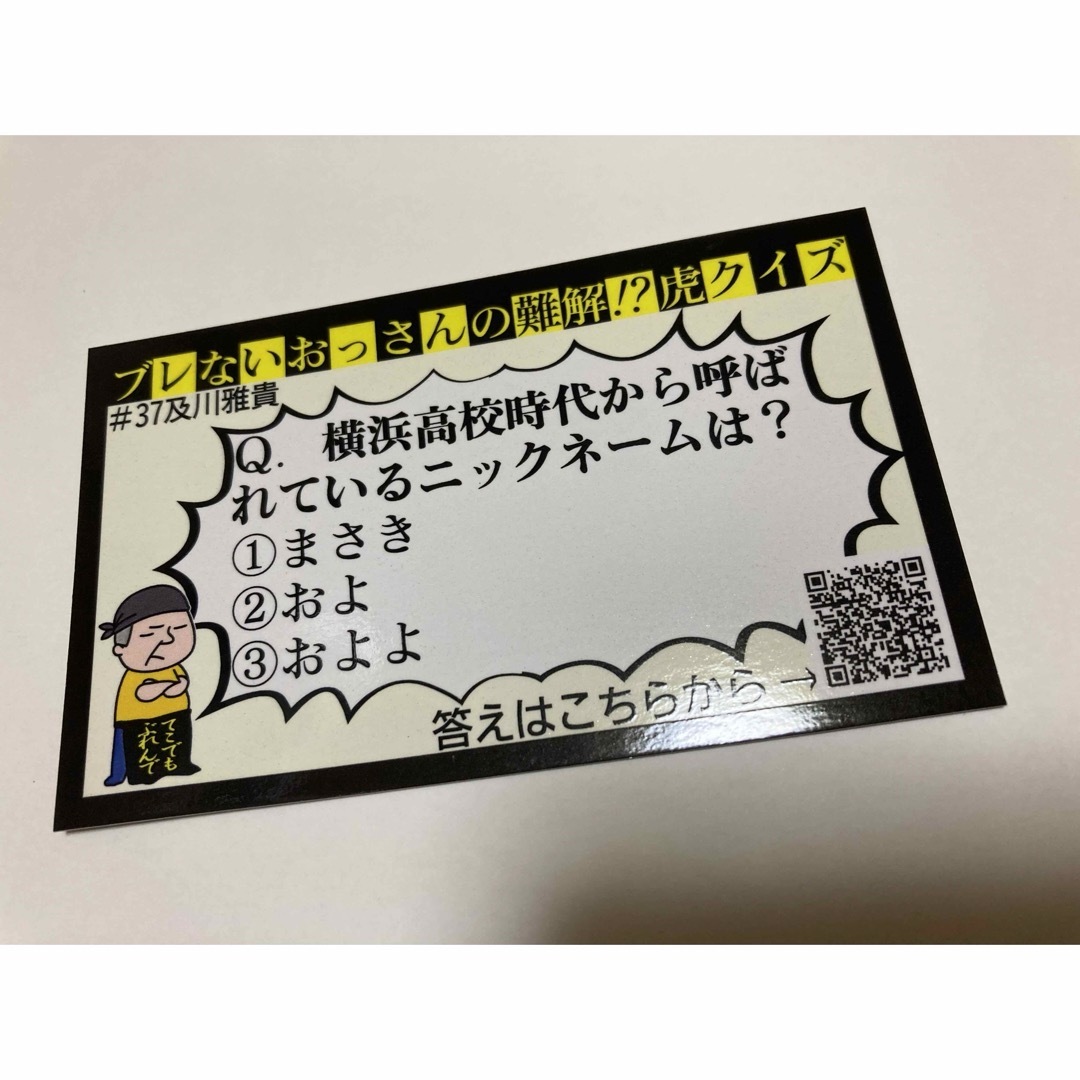 ブレないおっさんの難解!?虎クイズ
#37及川雅貴
Q. 横浜高校時代から呼ば
れているニックネームは？
①まさき
②およ
③およよ
答えはこちらから→
てこでも
ぶれんで